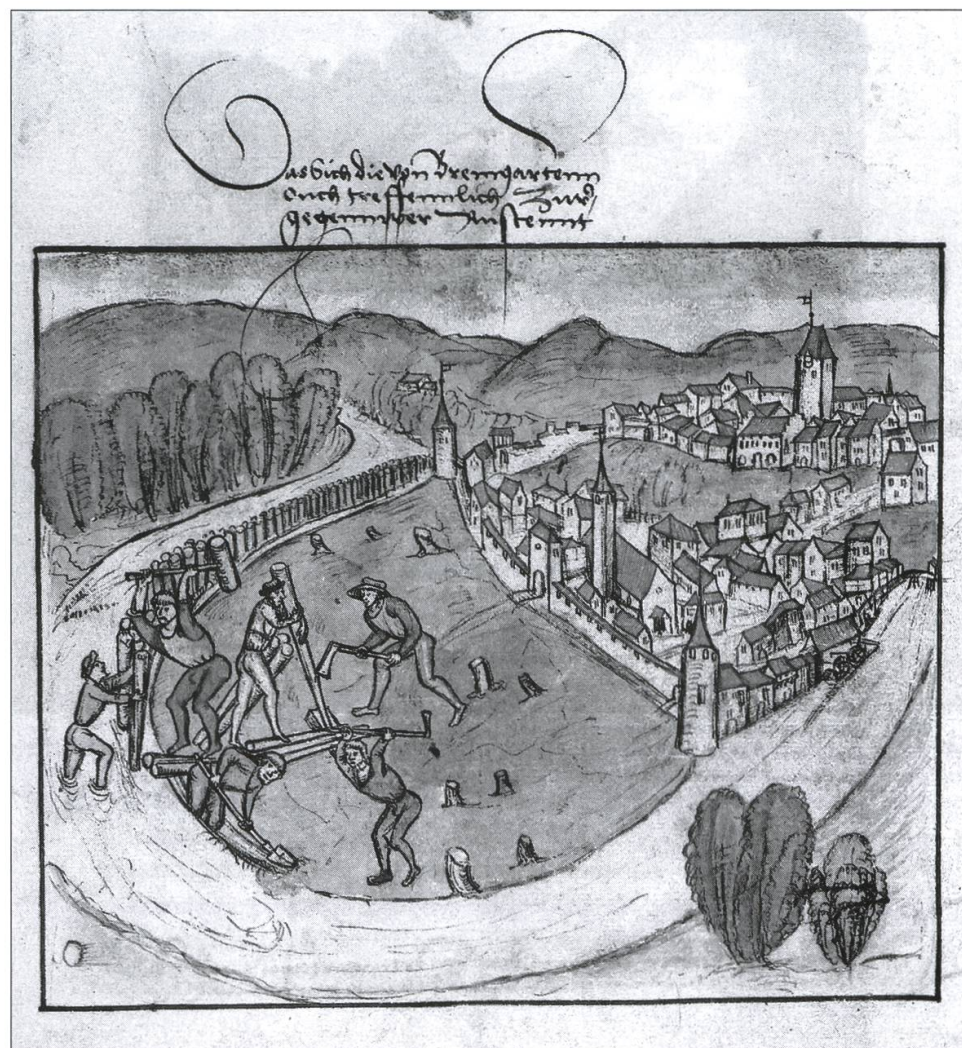 Das Sich die von Bremgartenn
Ouch treffennlich Zur
gegennwer Anstennt